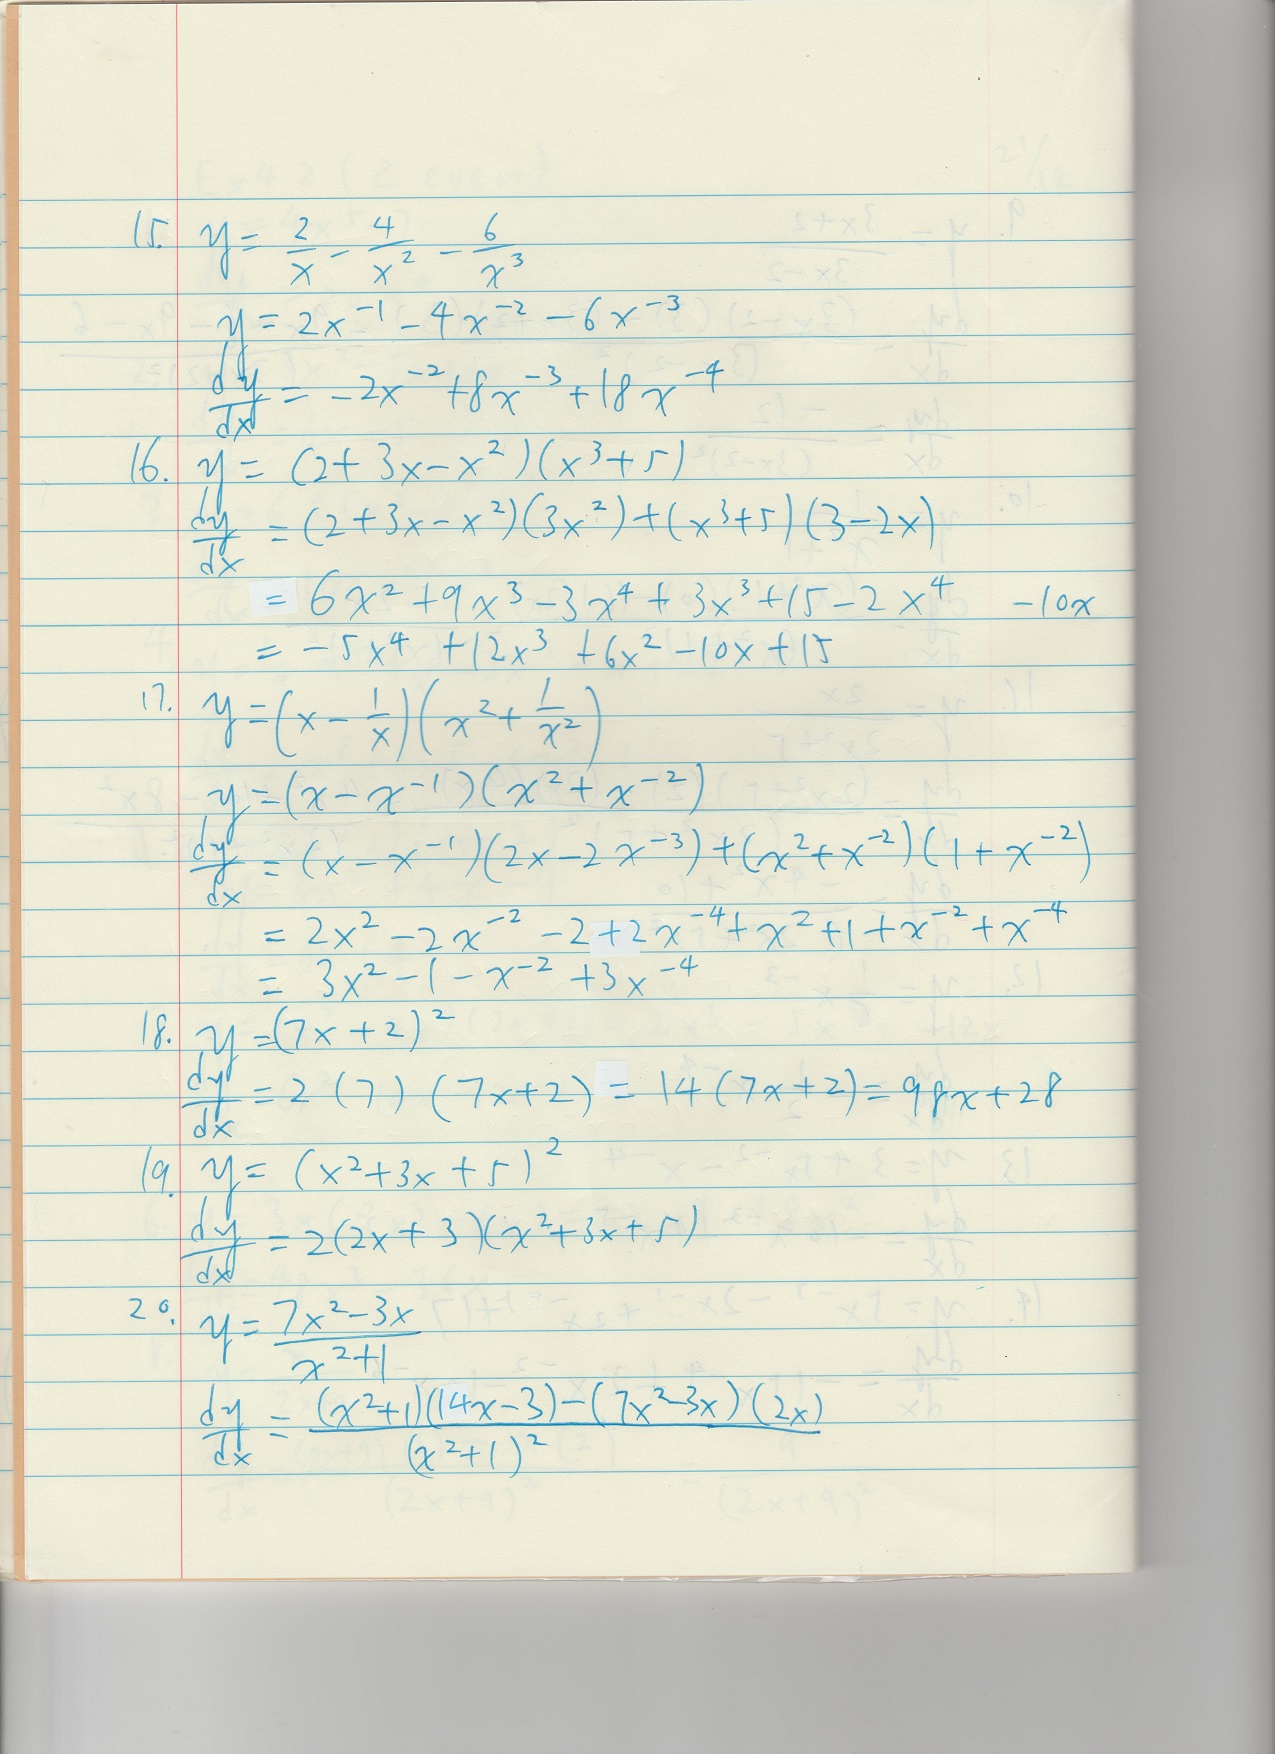 15. y = 2/x - 4/x² - 6/x³
y = 2x⁻¹ - 4x⁻² - 6x⁻³
dy/dx = -2x⁻² + 8x⁻³ + 18x⁻⁴
16. y = (2 + 3x - x²)(x³ + 5)
dy/dx = (2 + 3x - x²)(3x²) + (x³ + 5)(3 - 2x)
= 6x² + 9x³ - 3x⁴ + 3x³ + 15 - 2x⁴ - 10x
= -5x⁴ + 12x³ + 6x² - 10x + 15
17. y = (x - 1/x)(x² + 1/x²)
y = (x - x⁻¹)(x² + x⁻²)
dy/dx = (x - x⁻¹)(2x - 2x⁻³) + (x² + x⁻²)(1 + x⁻²)
= 2x² - 2x⁻² - 2 + 2x⁻⁴ + x² + 1 + x⁻² + x⁻⁴
= 3x² - 1 - x⁻² + 3x⁻⁴
18. y = (7x + 2)²
dy/dx = 2(7)(7x + 2) = 14(7x + 2) = 98x + 28
19. y = (x² + 3x + 5)²
dy/dx = 2(2x + 3)(x² + 3x + 5)
20. y = (7x² - 3x)/(x² + 1)
dy/dx = ((x² + 1)(14x - 3) - (7x² - 3x)(2x))/(x² + 1)²